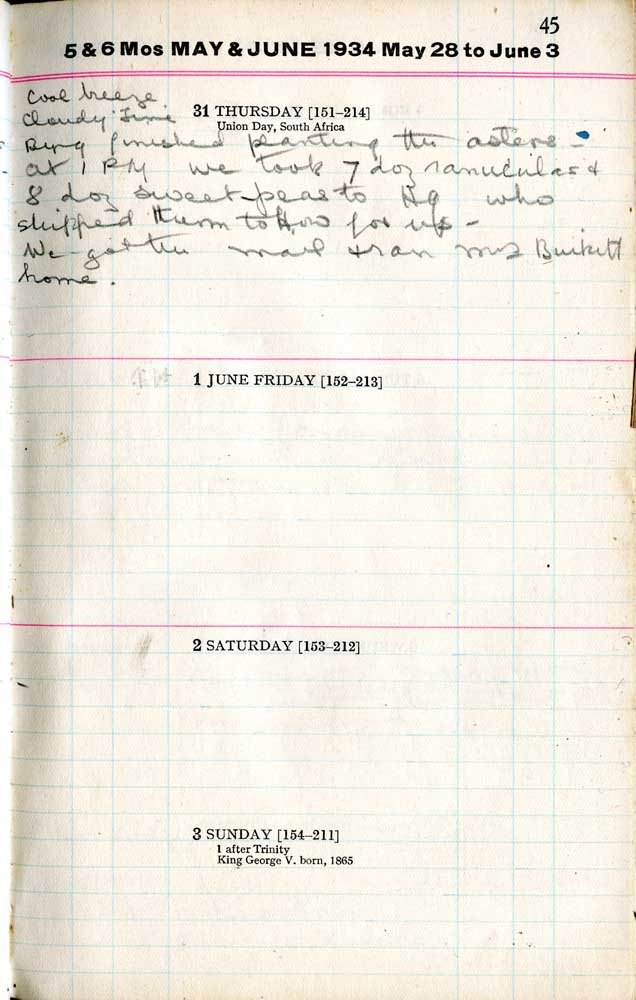 45
5 & 6 Mos MAY & JUNE 1934 May 28 to June 3
Cool breeze.
Cloudy Time
31 THURSDAY [151–214]
Union Day, South Africa
finished planting the asters –
at 1 PM we took 7 doz ranuculas &
8 doz sweet peas to Hq who
shipped them to How for us –
We got the mail & ran Mrs Burkett
home.
1 JUNE FRIDAY [152–213]
2 SATURDAY [153–212]
3 SUNDAY [154–211]
1 after Trinity
King George V. born, 1865